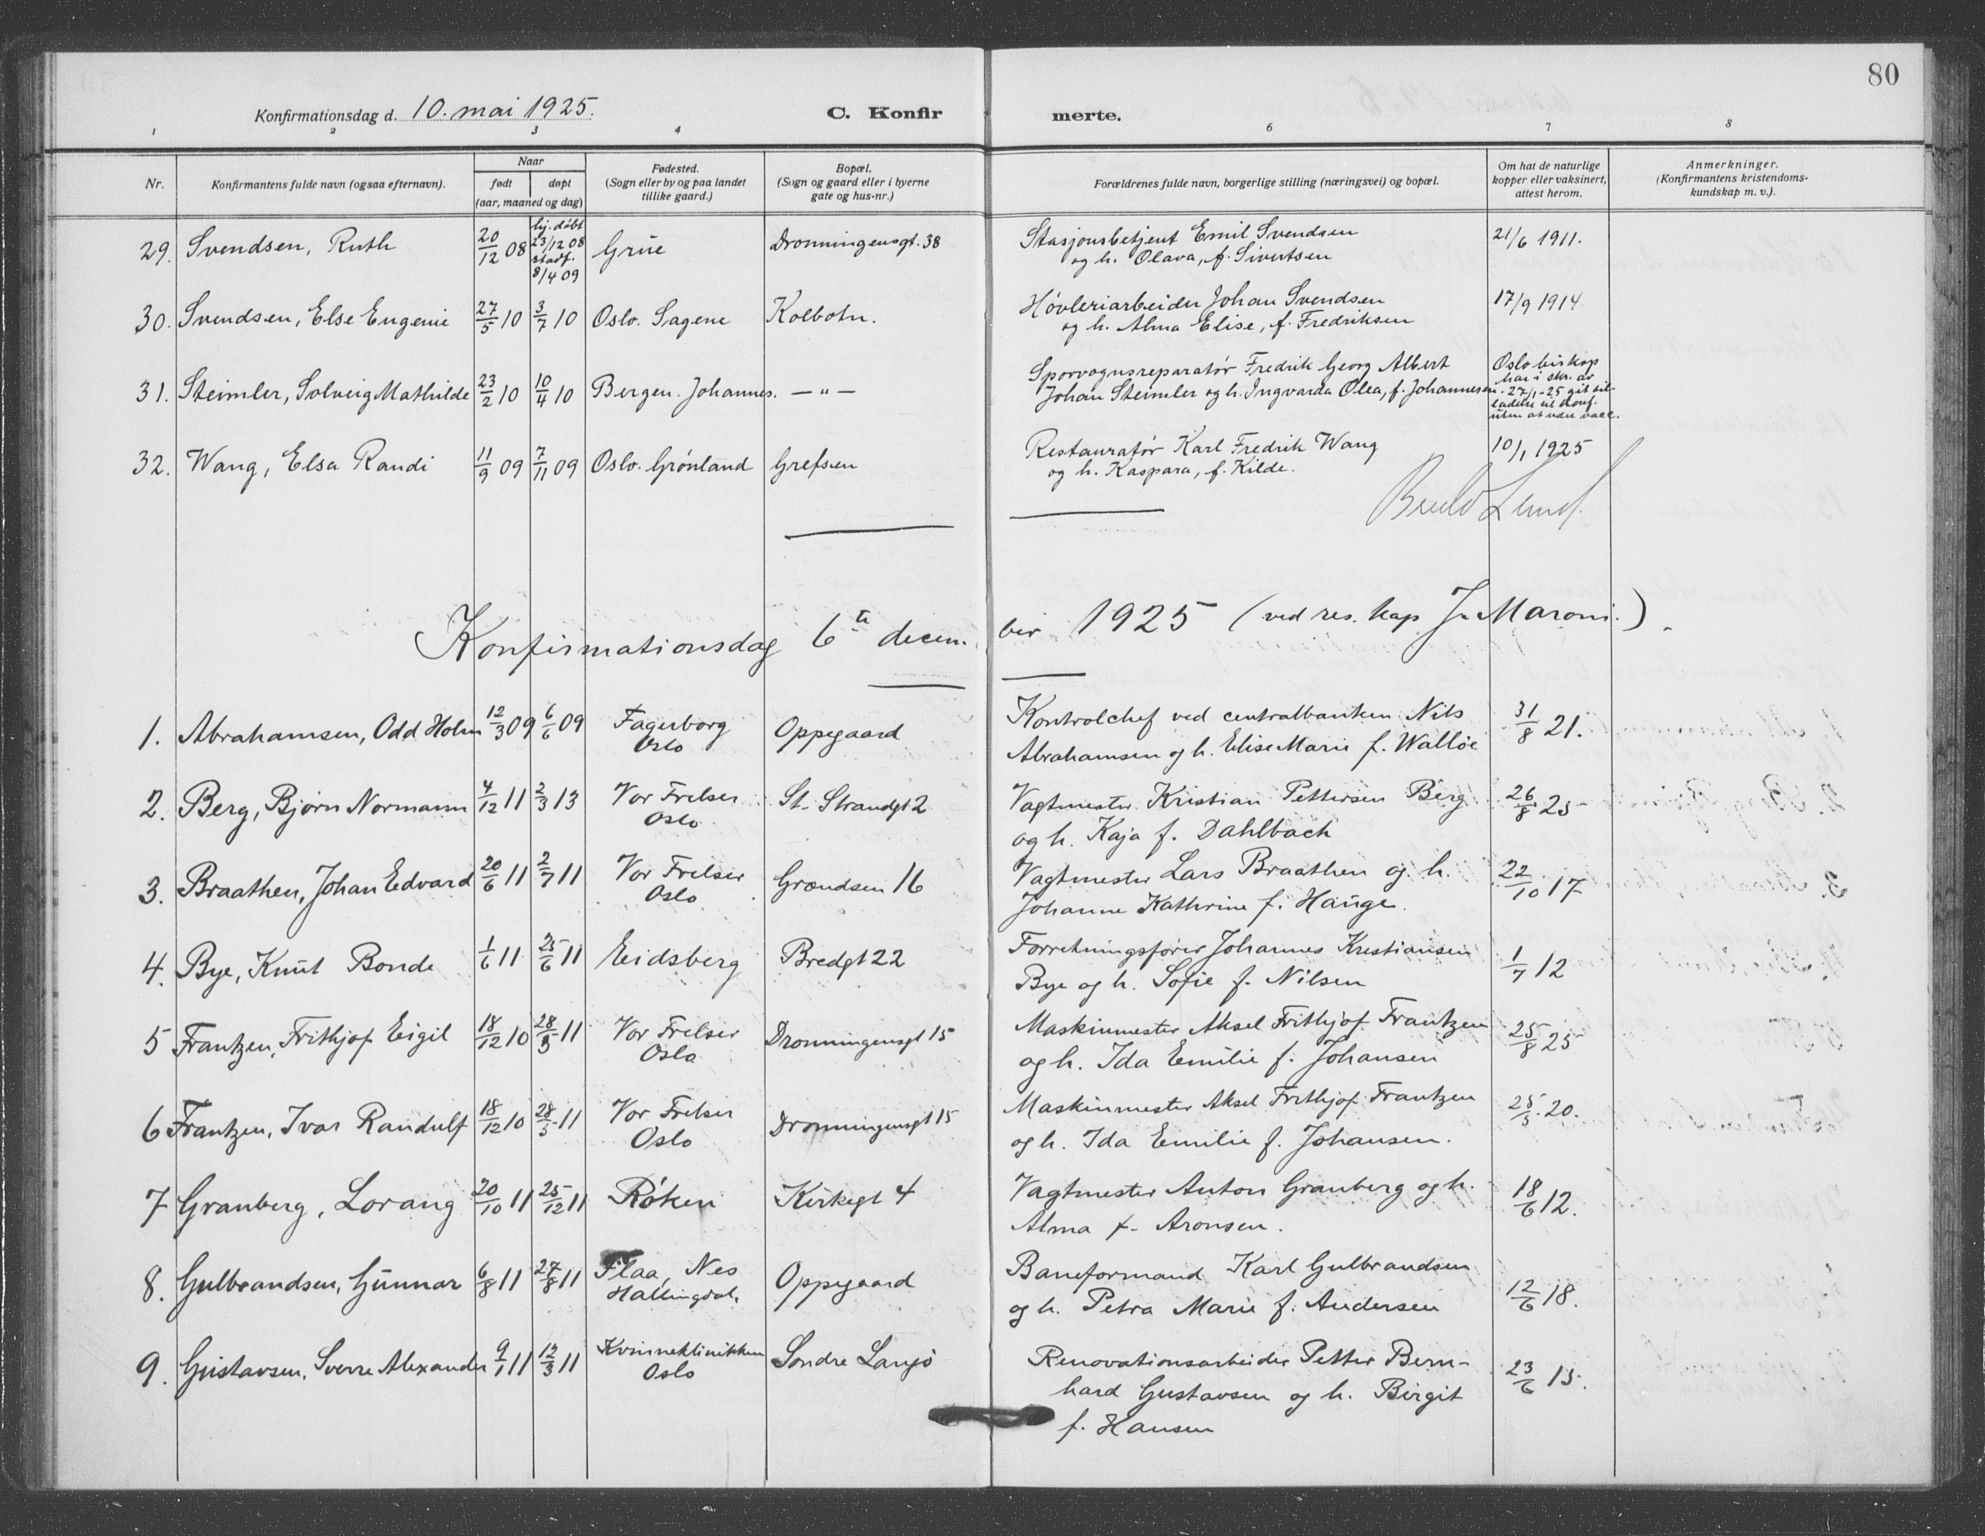 80
Konfirmationsdag d. 10. mai 1925.
C. Konfirmerte.
1 2 3 4 6 7 8
Nr.
Konfirmantens fulde navn (ogsaa efternavn).
Naar
født
døpt
(aar, maaned og dag)
Fødested.
(Sogn eller by og paa landet
tillike gaard.)
Bopæl.
(Sogn og gaard eller i byerne
gate og hus-nr.)
Forældrenes fulde navn, borgerlige stilling (næringsvei) og bopæl.
Om hat de naturlige
kopper eller vaksinert,
attest herom.
Anmerkninger.
(Konfirmantens kristendoms-
kundskap m. v.).
29. Svendsen, Ruth 20/12 08 hj. døbt 23/12 08 stadf. 8/4 09 Grue Dronningensgt. 38 Stasjonsbetjent Emil Svendsen 21/6 1911.
og h. Olava, f. Sivertsen
30. Svendsen, Else Eugenie 27/5 10 3/7 10 Oslo. Sagene Kolbotn. Høvleriarbeider Johan Svendsen 17/9 1914
og h. Alma Elise, f. Fredriksen
31. Steimler, Solveig Mathilde 23/2 10 10/4 10 Bergen. Johannes. — " — Sporvognsreparatør Fredrik Georg Albert
Johan Steimler og h. Ingvarda Olea, f. Johannesen.
Oslo biskop
har i skr. av
27/1-25 git til-
ladelse til konf.
uten at være vacc.
32. Wang, Elsa Randi 11/9 09 7/11 09 Oslo. Grønland Grefsen Restauratør Karl Fredrik Wang 10/1 1925
og h. Kaspara, f. Kilde.
Lund.
Konfirmationsdag 6te december 1925 (ved res. kap J. Maroni.).
1. Abrahamsen, Odd Holm 12/3 09 6/6 09 Fagerborg Oslo Oppegaard Kontrolchef ved centralbanken Nils 31/8 21.
Abrahamsen og h. Elise Marie f. Walløe
2. Berg, Bjørn Normann 4/12 11 2/3 13 Vor Frelser Oslo St. Strandgt 2 Vagtmester Kristian Pettersen Berg 26/8 25
og h. Kaja f. Dahlbach
3. Braathen, Johan Edvard 20/6 11 2/7 11 Vor Frelser Oslo Grændsen 16 Vagtmester Lars Braathen og h. 22/10 17
Johanne Kathrine f. Hauge.
4. Bye, Knut Bonde 1/6 11 25/6 11 Eidsberg Bredgt 22 Forretningsfører Johannes Kristiansen 1/7 12
Bye og h. Sofie f. Nilsen
5 Frantzen, Frithjof Eigil 18/12 10 28/5 11 Vor Frelser Oslo Dronningensgt 15 Maskinmester Aksel Frithjof Frantzen 25/8 25
og h. Ida Emilie f. Johansen
6 Frantzen, Ivar Randulf 18/12 10 28/5 11 Vor Frelser Oslo Dronningensgt 15 Maskinmester Aksel Frithjof Frantzen 25/5 20.
og h. Ida Emilie f. Johansen.
7 Granberg, Lorang 20/10 11 25/12 11 Røken Kirkegt 4 Vagtmester Anton Granberg og h. 18/6 12.
Alma f. Aronsen.
8. Gulbrandsen, Gunnar 6/8 11 27/8 11 Flaa, Nes Hallingdal. Oppegaard Baneformand Karl Gulbrandsen 12/6 18.
og h. Petra Marie f. Andersen
9. Gustavsen, Sverre Alexander 9/1 11 12/3 11 Kvinneklinikken Oslo Søndre Langø Renovationsarbeider Petter Bern- 23/6 15.
hard Gustavsen og h. Birgit
f. Hansen